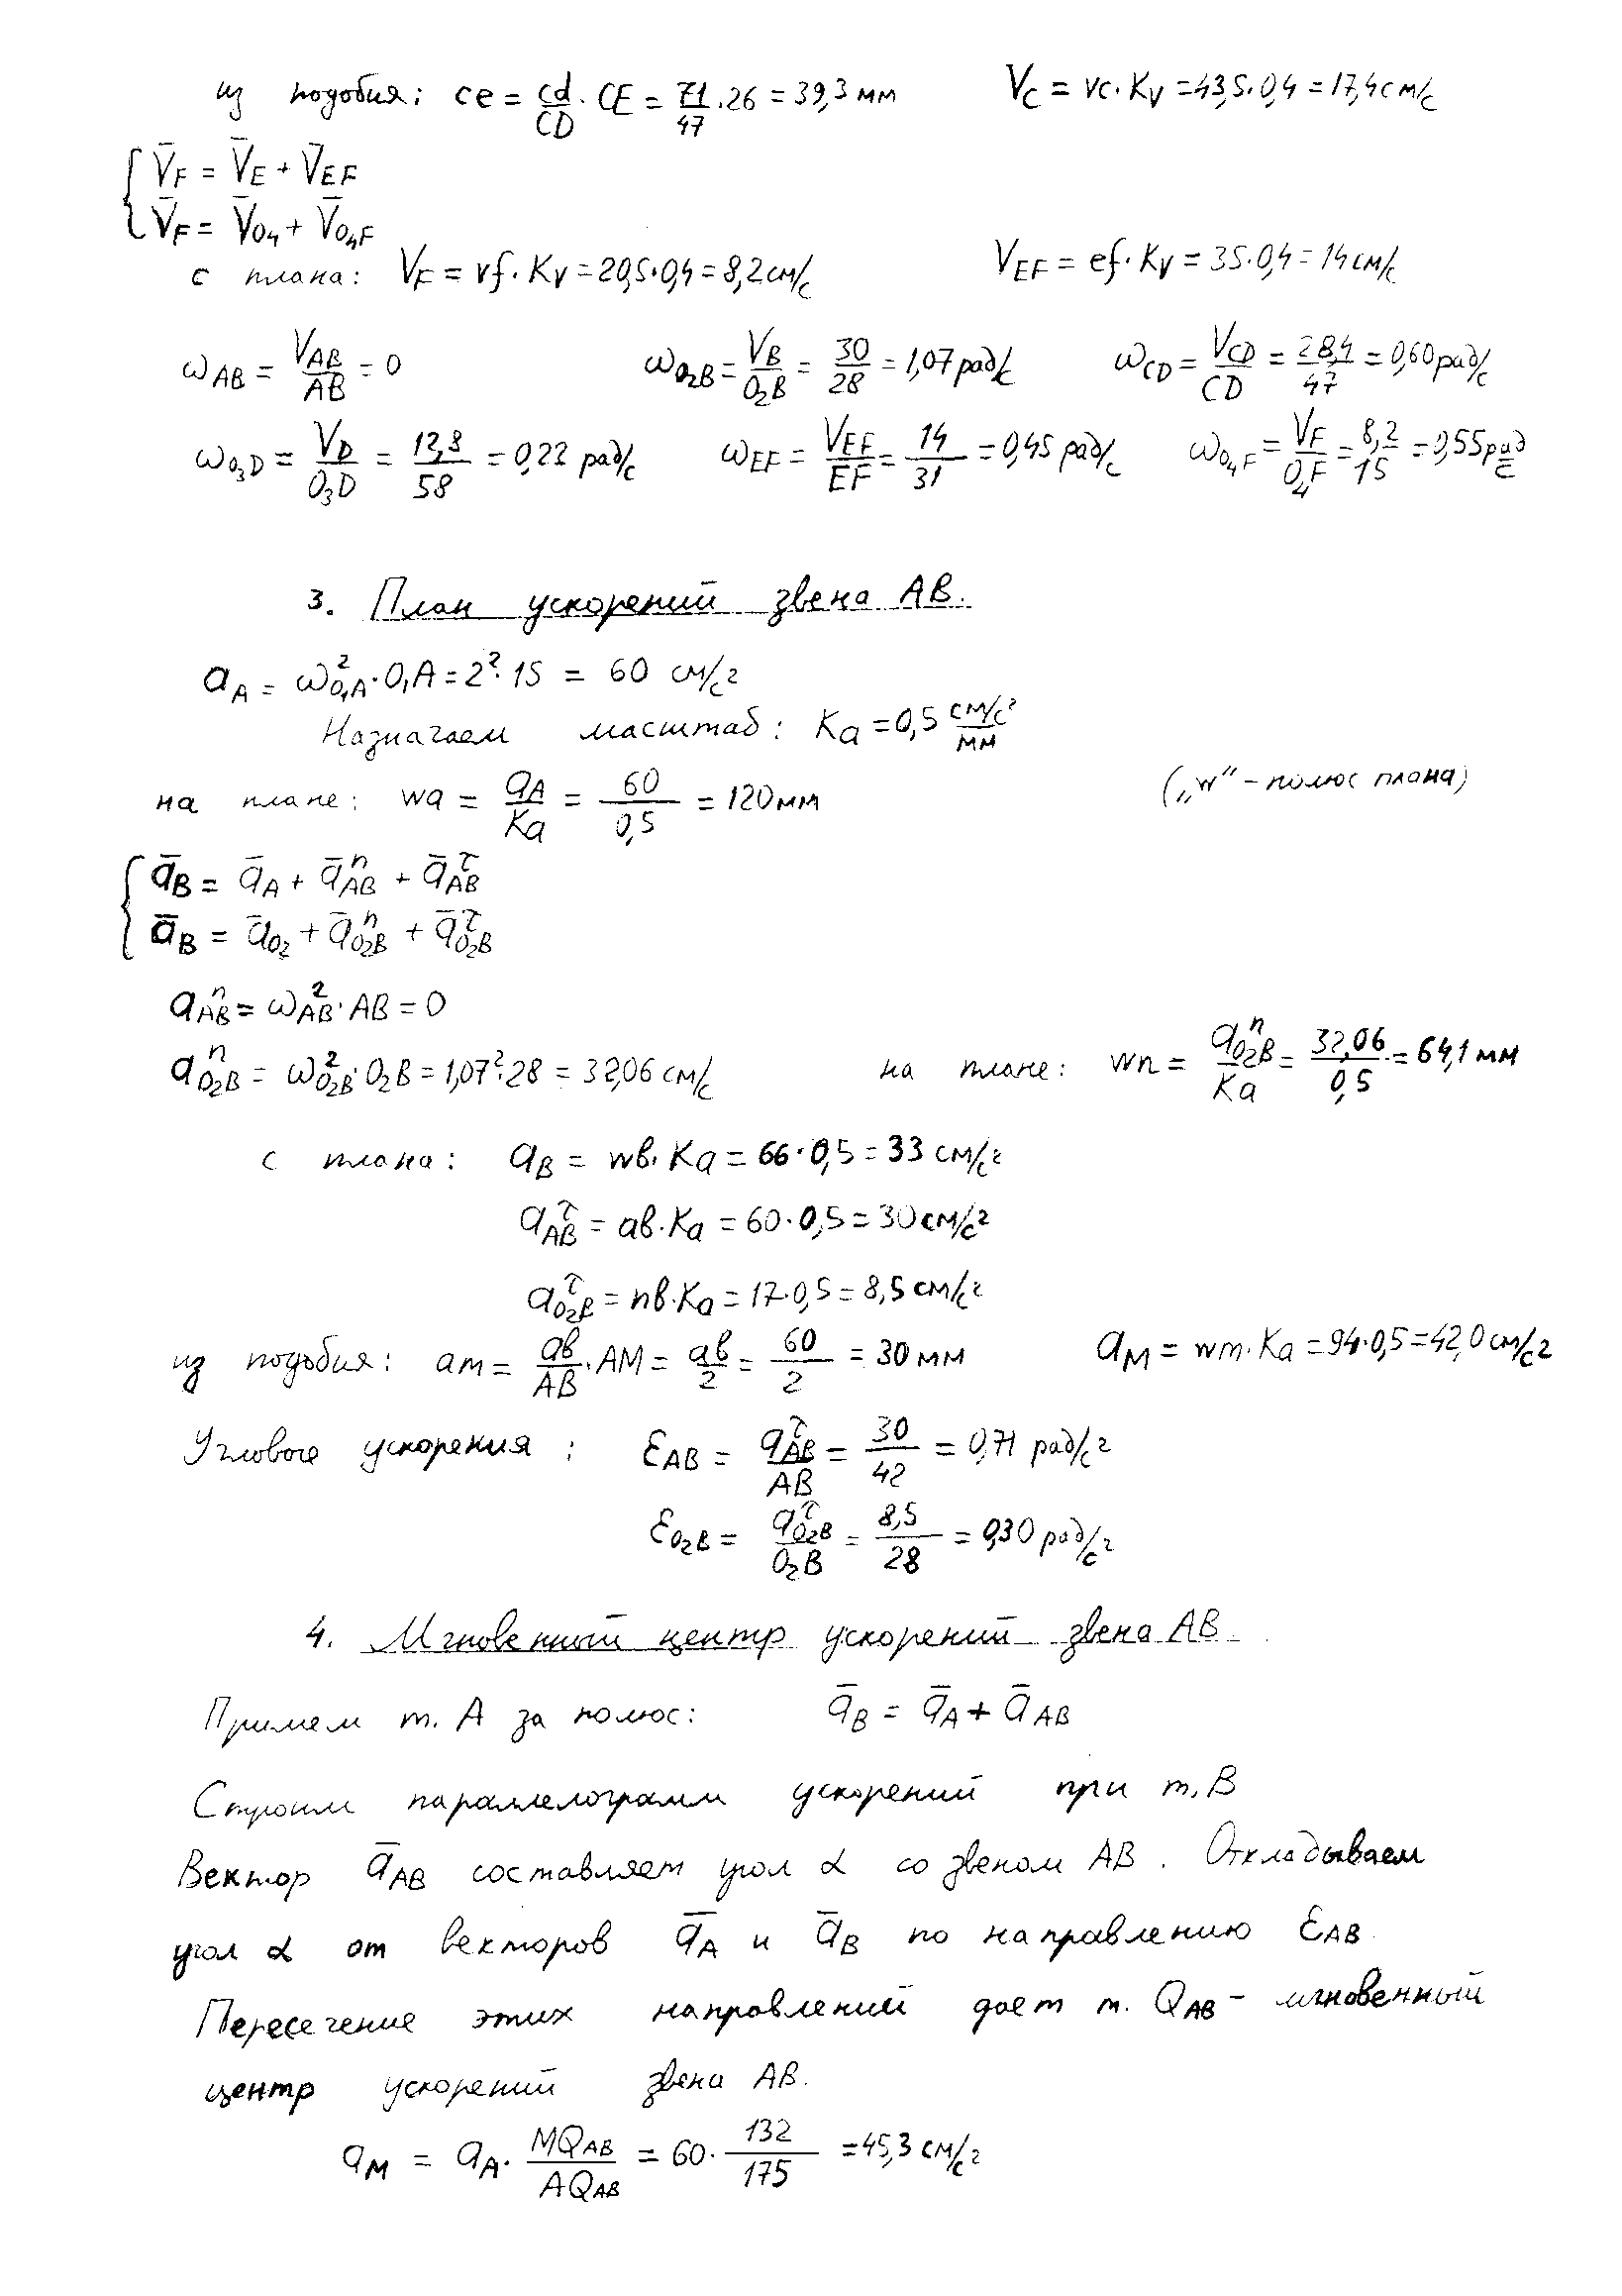 из подобия: ce = cd/CD · CE = 71/47 · 26 = 39,3 мм V_C = vc · K_V = 43,5 · 0,4 = 17,4 см/с
{ V̄_F = V̄_E + V̄_EF
V̄_F = V̄_O₄ + V̄_O₄F
с плана: V_F = vf · K_V = 20,5 · 0,4 = 8,2 см/с V_EF = ef · K_V = 35 · 0,4 = 14 см/с
ω_AB = V_AB/AB = 0 ω_O₂B = V_B/O₂B = 30/28 = 1,07 рад/с ω_CD = V_CD/CD = 28,4/47 = 0,60 рад/с
ω_O₃D = V_D/O₃D = 12,8/58 = 0,22 рад/с ω_EF = V_EF/EF = 14/31 = 0,45 рад/с ω_O₄F = V_F/O₄F = 8,2/15 = 0,55 рад/с
3. План ускорений звена AB.
a_A = ω²_O₁A · O₁A = 2² · 15 = 60 см/с²
Назначаем масштаб: K_a = 0,5 см/с²/мм
на плане: wa = a_A/K_a = 60/0,5 = 120 мм („w" - полюс плана)
{ ā_B = ā_A + ā^n_AB + ā^τ_AB
ā_B = ā_O₂ + ā^n_O₂B + ā^τ_O₂B
a^n_AB = ω²_AB · AB = 0
a^n_O₂B = ω²_O₂B · O₂B = 1,07² · 28 = 32,06 см/с на плане: wn = a^n_O₂B/K_a = 32,06/0,5 = 64,1 мм
с плана: a_B = wв · K_a = 66 · 0,5 = 33 см/с²
a^τ_AB = aв · K_a = 60 · 0,5 = 30 см/с²
a^τ_O₂B = nв · K_a = 17 · 0,5 = 8,5 см/с²
из подобия: am = aв/AB · AM = aв/2 = 60/2 = 30 мм a_M = wm · K_a = 94 · 0,5 = 42,0 см/с²
Угловые ускорения: ε_AB = a^τ_AB/AB = 30/42 = 0,71 рад/с²
ε_O₂B = a^τ_O₂B/O₂B = 8,5/28 = 0,30 рад/с²
4. Мгновенный центр ускорений звена AB.
Примем т. A за полюс: ā_B = ā_A + ā_AB
Строим параллелограмм ускорений при т. B
Вектор ā_AB составляет угол α со звеном AB. Откладываем
угол α от векторов ā_A и ā_B по направлению ε_AB.
Пересечение этих направлений дает т. Q_AB - мгновенный
центр ускорений звена AB.
a_M = a_A · MQ_AB/AQ_AB = 60 · 132/175 = 45,3 см/с²